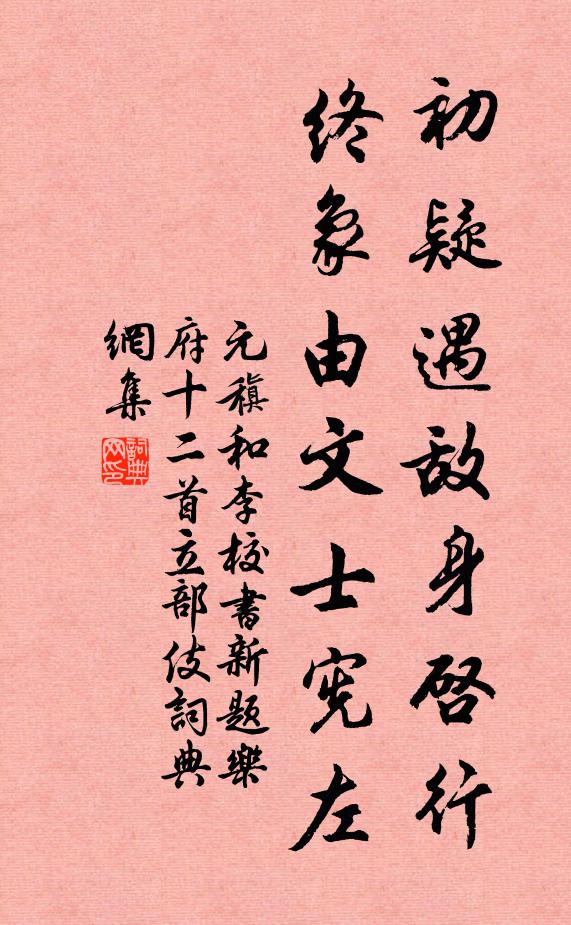 初疑遇敌身啓行
終象由文士宪左
元稹和李校書新題樂
府十二首立部伎詞典
網集
詞典
网印